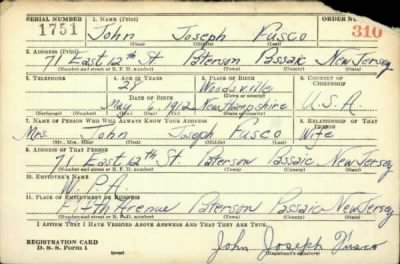 SERIAL NUMBER 1. NAME (Print) ORDER NO.
1751 John Joseph Fusco 310
(First) (Middle) (Last)
2. ADDRESS (Print)
71 East 12th St Paterson Passaic New Jersey
(Number and street or R. F. D. number) (Town) (County) (State)
3. TELEPHONE 4. AGE IN YEARS 5. PLACE OF BIRTH 6. COUNTRY OF CITIZENSHIP
28 Woodsville
(Town or county)
DATE OF BIRTH
May 6, 1912 New Hampshire U.S.A.
(Exchange) (Number) (Mo.) (Day) (Yr.) (State or country)
7. NAME OF PERSON WHO WILL ALWAYS KNOW YOUR ADDRESS 8. RELATIONSHIP OF THAT PERSON
Mrs. John Joseph Fusco Wife
(Mr., Mrs., Miss) (First) (Middle) (Last)
9. ADDRESS OF THAT PERSON
71 East 12th St. Paterson Passaic New Jersey
(Number and street or R. F. D. number) (Town) (County) (State)
10. EMPLOYER'S NAME
W.P.A.
11. PLACE OF EMPLOYMENT OR BUSINESS
Fifth Avenue Paterson Passaic New Jersey
(Number and street or R. F. D. number) (Town) (County) (State)
I AFFIRM THAT I HAVE VERIFIED ABOVE ANSWERS AND THAT THEY ARE TRUE.
REGISTRATION CARD
D. S. S. Form 1 (over) John Joseph Fusco
(Registrant's signature)